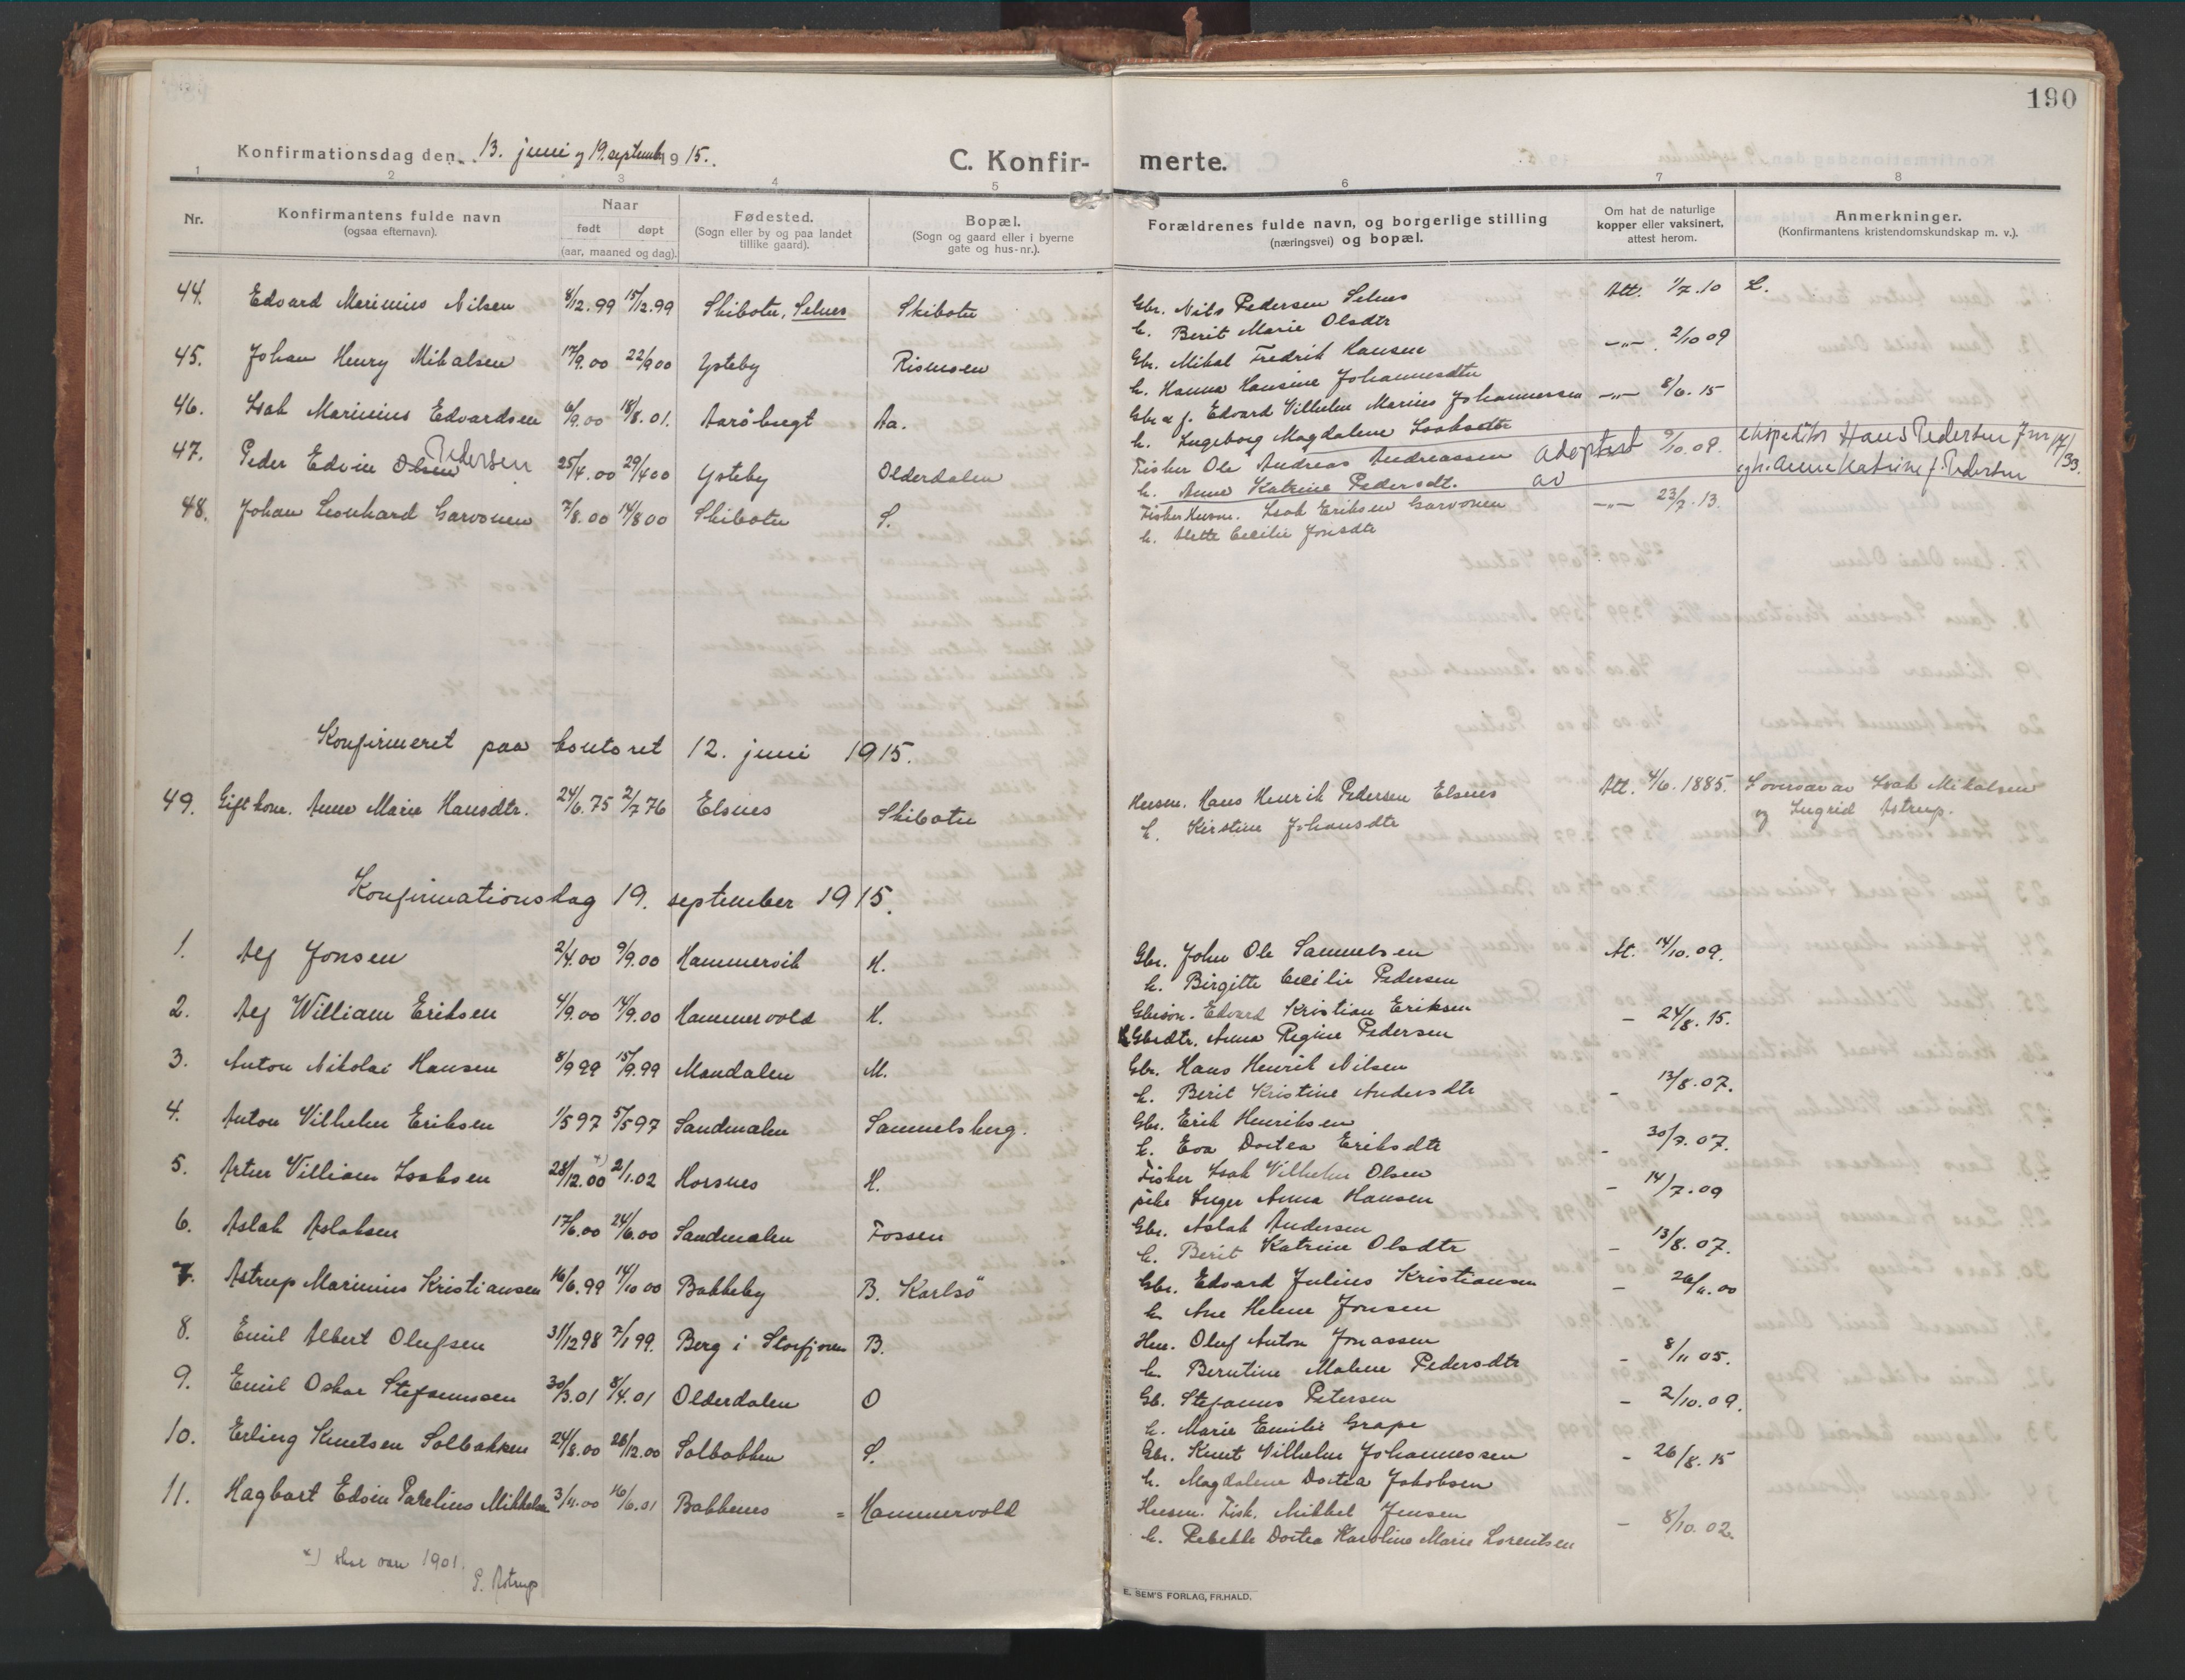 190
Konfirmationsdag den 13. juni og 19. septemb 1915.
C. Konfir- merte.
1 2 3 4 5 6 7 8
Nr.
Konfirmantens fulde navn
(ogsaa efternavn).
Naar
født døpt
(aar, maaned og dag).
Fødested.
(Sogn eller by og paa landet
tillike gaard).
Bopæl.
(Sogn og gaard eller i byerne
gate og hus-nr.).
Forældrenes fulde navn, og borgerlige stilling
(næringsvei) og bopæl.
Om hat de naturlige
kopper eller vaksinert,
attest herom.
Anmerkninger.
(Konfirmantens kristendomskundskap m. v.).
44. Edvard Marinius Nilsen 8/12.99 15/12.99 Skibotn, Selnes Skibotn Gbr. Nils Pedersen Selnes Att. 1/7.10 L.
h. Berit Marie Olsdtr
45. Johan Henry Mikalsen 17/9.00 22/9 00 Ysteby Rismoen Gbr. Mikal Fredrik Hansen —"— 2/10 09
h. Hanna Hansine Johannesdtr
46. Isak Marinius Edvardsen 6/9.00 18/8.01. Aarøbugt Aa. Gbr & f. Edvard Vilhelm Marius Johannessen —"— 8/6.15
h. Ingeborg Magdalene Isaksdtr
47. Peder Edvin Olsen Pedersen 25/4.00 29/4 00 Ysteby Olderdalen Fisker Ole Andreas Andreassen adoptert 9/10.09. ekspeditør Hans Pedersen Jnr 17/1 33.
h. Anne Katrine Pedersdt. av egh. Anne Katrine f. Pedersen
48. Johan Leonhard Garvonen 7/8.00 14/8 00 Skibotn S. Fisker Husm. Isak Eriksen Garvonen —"— 23/7.13.
h. Alette Cecilie Jonsdtr
Konfirmeret paa kontoret 12. juni 1915.
49. Gift kone. Anne Marie Hansdtr. 24/6.75 2/7 76 Elsnes Skibotn Husm. Hans Henrik Pedersen Elsnes Att. 4/6.1885. Loversar av Isak Mikalsen
h. Kirstine Johansdtr og Ingrid Astrup.
Konfirmationsdag 19. september 1915.
1. Alf Jonsen 2/4.00 9/9.00 Hammervik H. Gbr. John Ole Samuelsen At. 14/10.09.
h. Birgitte Cecilie Pedersen
2. Alf William Eriksen 4/9.00 14/9.00 Hammervold H. Gbrsøn. Edvard Kristian Eriksen — 24/8.15.
Gbrdtr. Anna Regine Pedersen
3. Anton Nikolai Hansen 8/9 99 15/9.99 Mandalen M. Gbr. Hans Henrik Nilsen — 13/8.07.
h. Berit Kristine Andersdtr
4. Anton Vilhelm Eriksen 1/5 97 5/5 97 Sandmalen Samuelsberg. Gbr. Erik Henriksen — 30/7.07.
h. Eva Dortea Eriksdtr
5. Artur Villiam Isaksen 28/12.00 x) 2/1.02 Horsnes H. Fisker Isak Vilhelm Olsen — 14/7.09
pike Inger Anna Hansen
6. Aslak Aslaksen 17/6.00 24/6.00 Sandmalen Fossen Gbr. Aslak Andersen — 13/8.07.
h. Berit Katrine Olsdtr
7. Astrup Marinius Kristiansen 16/6.99 14/10 00 Bakkeby B. Karlsö Gbr. Edvard Julius Kristiansen — 26/11.00
h. Ane Helene Jonsen
8. Emil Albert Olufsen 31/12 98 7/1 99. Berg i Storfjoren B. Hm. Oluf Anton Jonassen — 8/11 05.
h. Berntine Malene Pedersdtr
9. Emil Oskar Stefanussen 30/3.01 8/4.01 Olderdalen O Gb. Stefanus Petersen — 2/10.09.
h. Marie Emilie Grape
10. Erling Knutsen Solbakken 24/8.00 26/12.00 Solbakken S. Gbr. Knut Vilhelm Johannessen — 26/8.15
h. Magdalene Dortea Jakobsen
11. Hagbart Edvin Parelius Mikkelsen 3/11.00 16/6.01 Bakkenes = Hammervold Husm. Fisk. Mikkel Jensen — 8/10.02.
h. Rebekke Dortea Karoline Marie Lorentsen
x) skal være 1901.
P. Astrup
E. SEM'S FORLAG, FR.HALD.